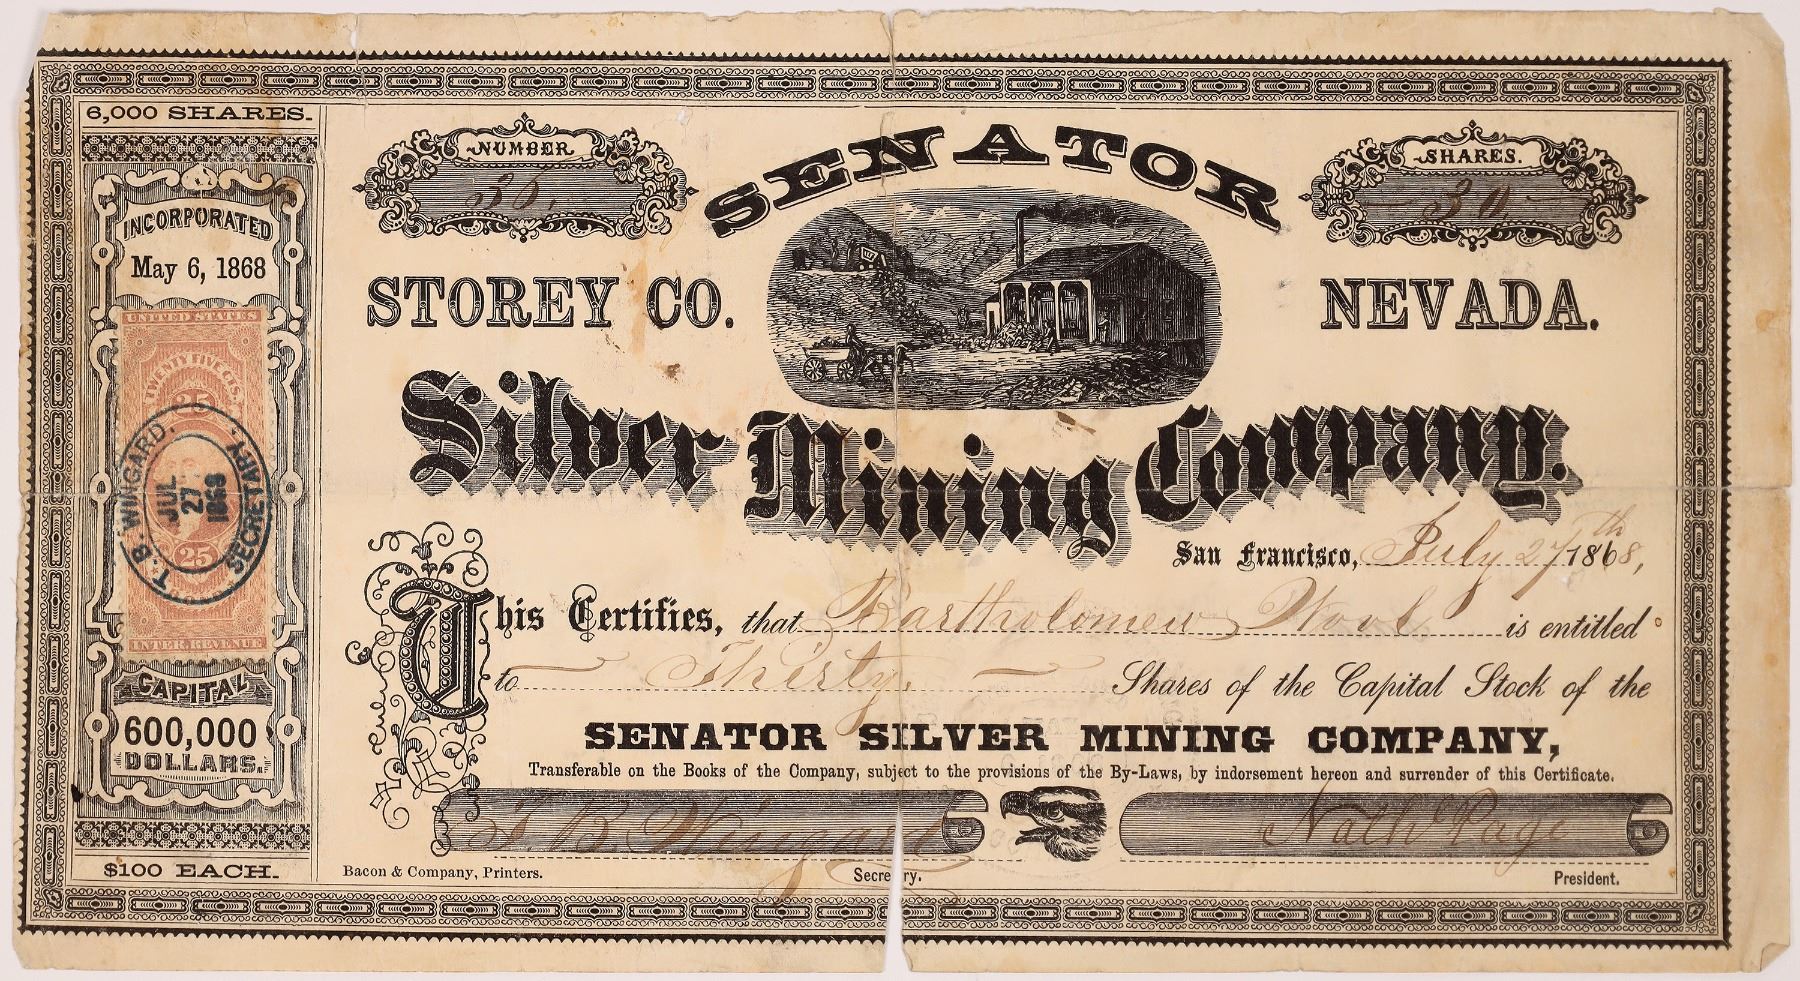 6,000 SHARES.
INCORPORATED
May 6, 1868
UNITED STATES
TWENTY FIVE CTS.
25
T. B. WINGARD,
JUL
27
1868
SECRETARY.
25
INTER. REVENUE
CAPITAL
600,000
DOLLARS.
$100 EACH.
NUMBER
36.
SENATOR
SHARES.
30
STOREY CO.
NEVADA.
Silver Mining Company.
San Francisco, July 27th 1868,
This Certifies, that Bartholomew is entitled
to Thirty Shares of the Capital Stock of the
SENATOR SILVER MINING COMPANY,
Transferable on the Books of the Company, subject to the provisions of the By-Laws, by indorsement hereon and surrender of this Certificate.
T. B. Wingard
Nathl Page
Bacon & Company, Printers.
Secretary.
President.